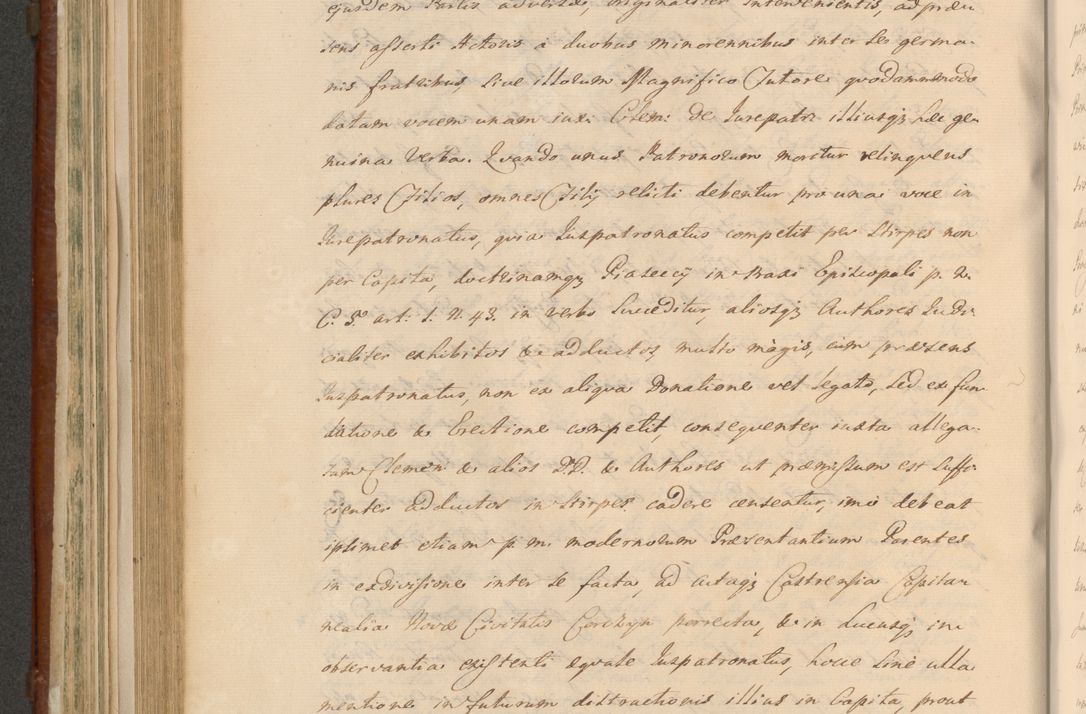 ejusdem Partis adversæ, originaliter intervenientis, ad præ-
sens asserti Actoris a duobus minorennibus inter se germa-
nis fratribus, sive illorum Magnifico Tutore quodammodo
datam vocem unam iux: Clem: de Jurepatr: illiusq; hæc ge-
nuina verba. Quando unus Patronorum moritur relinquens
plures Filios, omnes Filij relicti debentur pro una voce in
Jurepatronatus, quia Juspatronatus competit per Stirpes non
per Capita, doctrinamq; Piasecij in Praxi Episcopali p. 2.
C. 5. art: 1. N. 43. in verbo Succeditur, aliosq; Authores Judi-
cialiter exhibitos & adductos, multo magis, cum præsens
Juspatronatus, non ex aliqua Donatione vel legato, sed ex fun-
datione & Erectione competit, consequenter iuxta allega-
tam Clemen: & alios D.D. & Authores ut præmissum est suffi-
cienter adductos in Stirpes cadere censeatur, imo debeat
ipsimet etiam p. m. modernorum Præsentantium Parentes
in exdivisione inter se facta, ad actaq; Castrensia Capitan
nealia Novæ Civitatis Corczyn porrecta, & in hucusq; in
observantia existenti æquale Juspatronatus, hocce sine ulla
mentione in futurum distractionis illius in Capita, prout